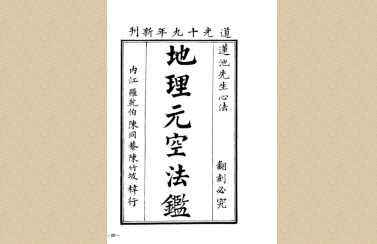 道光十九年新刊
蓮池先生心法
翻刻必究
地理元空法鑑
內江羅乾伯陳同菴陳竹坡梓行